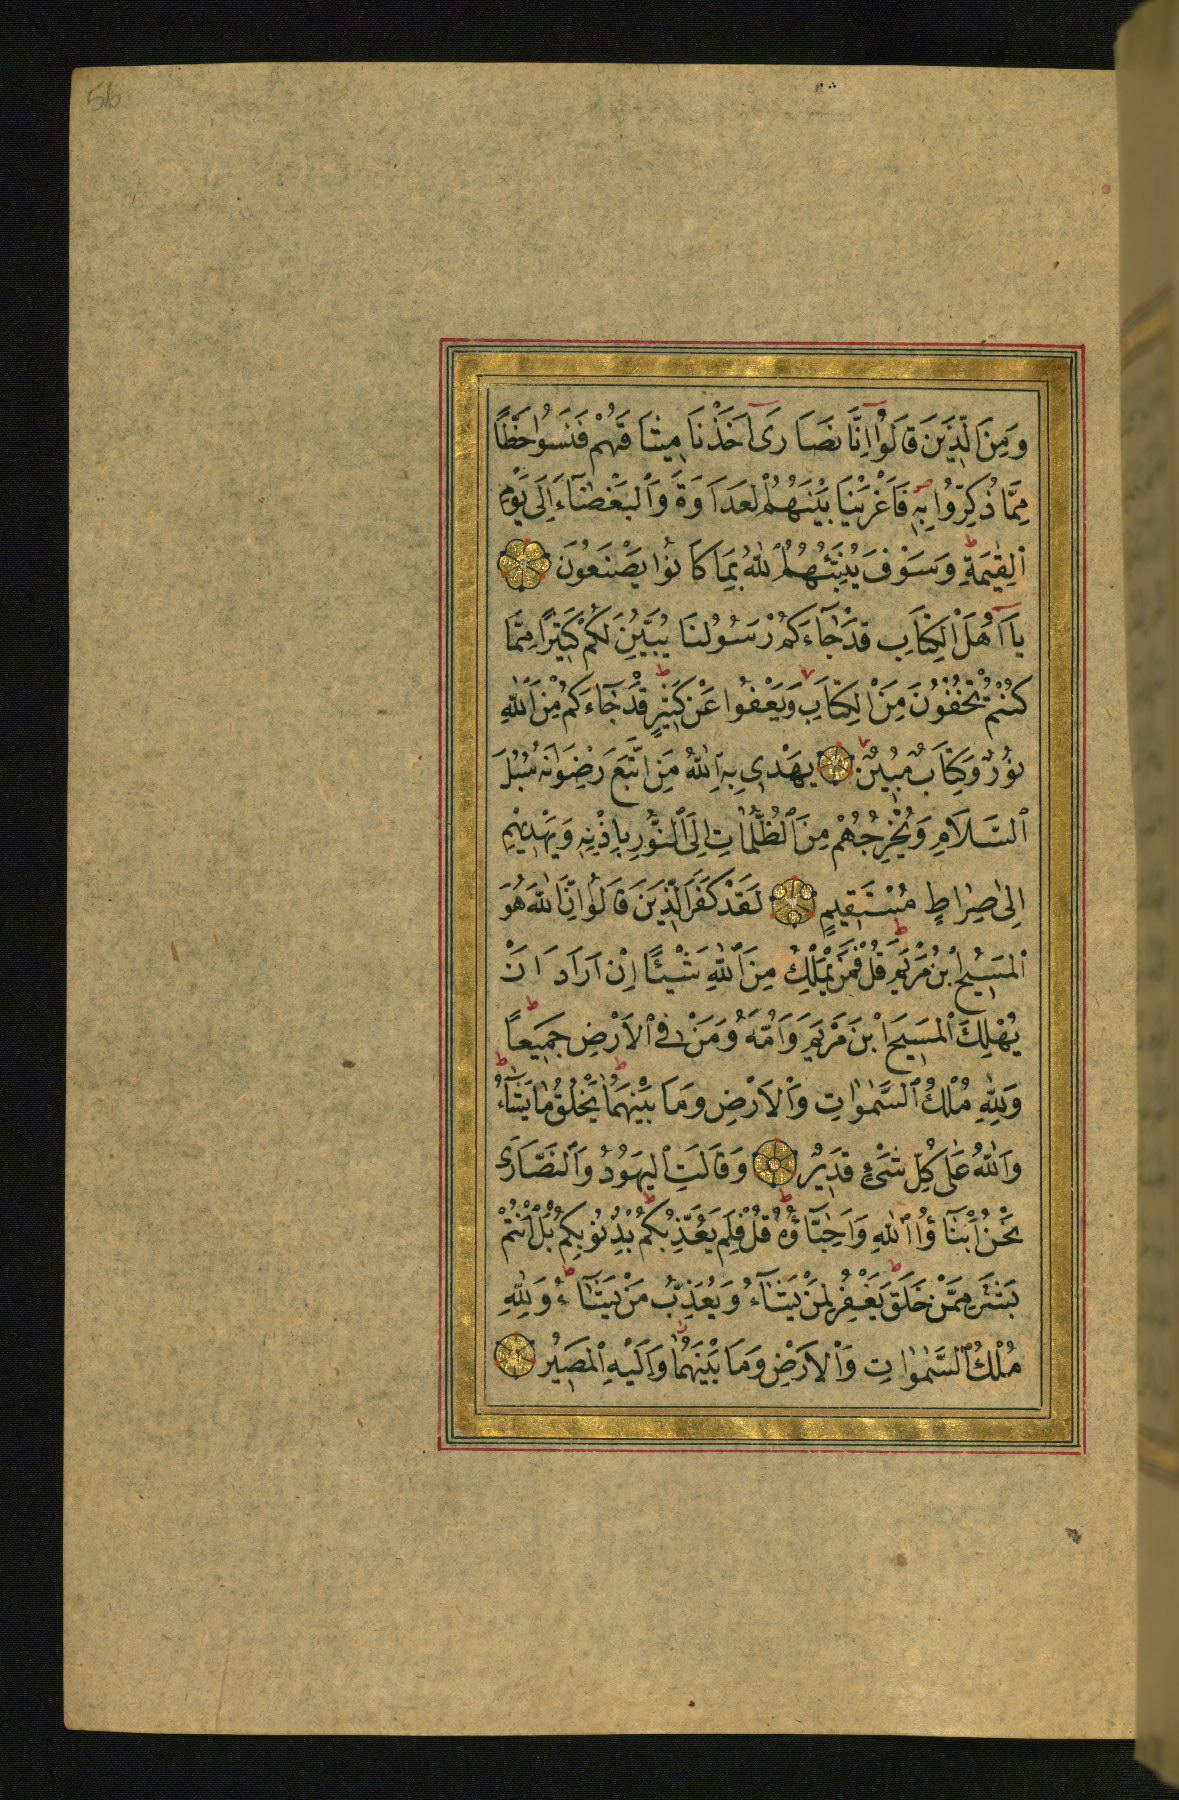 56
وَمِنَ الَّذِينَ قَالُوا اِنَّا نَصَارَى اَخَذْنَا مِيثَاقَهُمْ فَنَسُوا حَظًّا
مِمَّا ذُكِّرُوا بِهِ فَاَغْرَيْنَا بَيْنَهُمُ الْعَدَاوَةَ وَالْبَغْضَاءَ اِلَى يَوْمِ
الْقِيٰمَةِ وَسَوْفَ يُنَبِّئُهُمُ اللّٰهُ بِمَا كَانُوا يَصْنَعُونَ
يَا اَهْلَ الْكِتَابِ قَدْ جَاءَكُمْ رَسُولُنَا يُبَيِّنُ لَكُمْ كَثِيرًا مِمَّا
كُنْتُمْ تُخْفُونَ مِنَ الْكِتَابِ وَيَعْفُوا عَنْ كَثِيرٍ قَدْ جَاءَكُمْ مِنَ اللّٰهِ
نُورٌ وَكِتَابٌ مُبِينٌ يَهْدِي بِهِ اللّٰهُ مَنِ اتَّبَعَ رِضْوَانَهُ سُبُلَ
السَّلَامِ وَيُخْرِجُهُمْ مِنَ الظُّلُمَاتِ اِلَى النُّورِ بِاِذْنِهِ وَيَهْدِيهِمْ
اِلٰى صِرَاطٍ مُسْتَقِيمٍ لَقَدْ كَفَرَ الَّذِينَ قَالُوا اِنَّ اللّٰهَ هُوَ
الْمَسِيحُ ابْنُ مَرْيَمَ قُلْ فَمَنْ يَمْلِكُ مِنَ اللّٰهِ شَيْئًا اِنْ اَرَادَ اَنْ
يُهْلِكَ الْمَسِيحَ ابْنَ مَرْيَمَ وَاُمَّهُ وَمَنْ فِي الْاَرْضِ جَمِيعًا
وَلِلّٰهِ مُلْكُ السَّمٰوَاتِ وَالْاَرْضِ وَمَا بَيْنَهُمَا يَخْلُقُ مَا يَشَاءُ
وَاللّٰهُ عَلٰى كُلِّ شَيْءٍ قَدِيرٌ وَقَالَتِ الْيَهُودُ وَالنَّصَارَى
نَحْنُ اَبْنَاؤُا اللّٰهِ وَاَحِبَّاؤُهُ قُلْ فَلِمَ يُعَذِّبُكُمْ بِذُنُوبِكُمْ بَلْ اَنْتُمْ
بَشَرٌ مِمَّنْ خَلَقَ يَغْفِرُ لِمَنْ يَشَاءُ وَيُعَذِّبُ مَنْ يَشَاءُ وَلِلّٰهِ
مُلْكُ السَّمٰوَاتِ وَالْاَرْضِ وَمَا بَيْنَهُمَا وَاِلَيْهِ الْمَصِيرُ